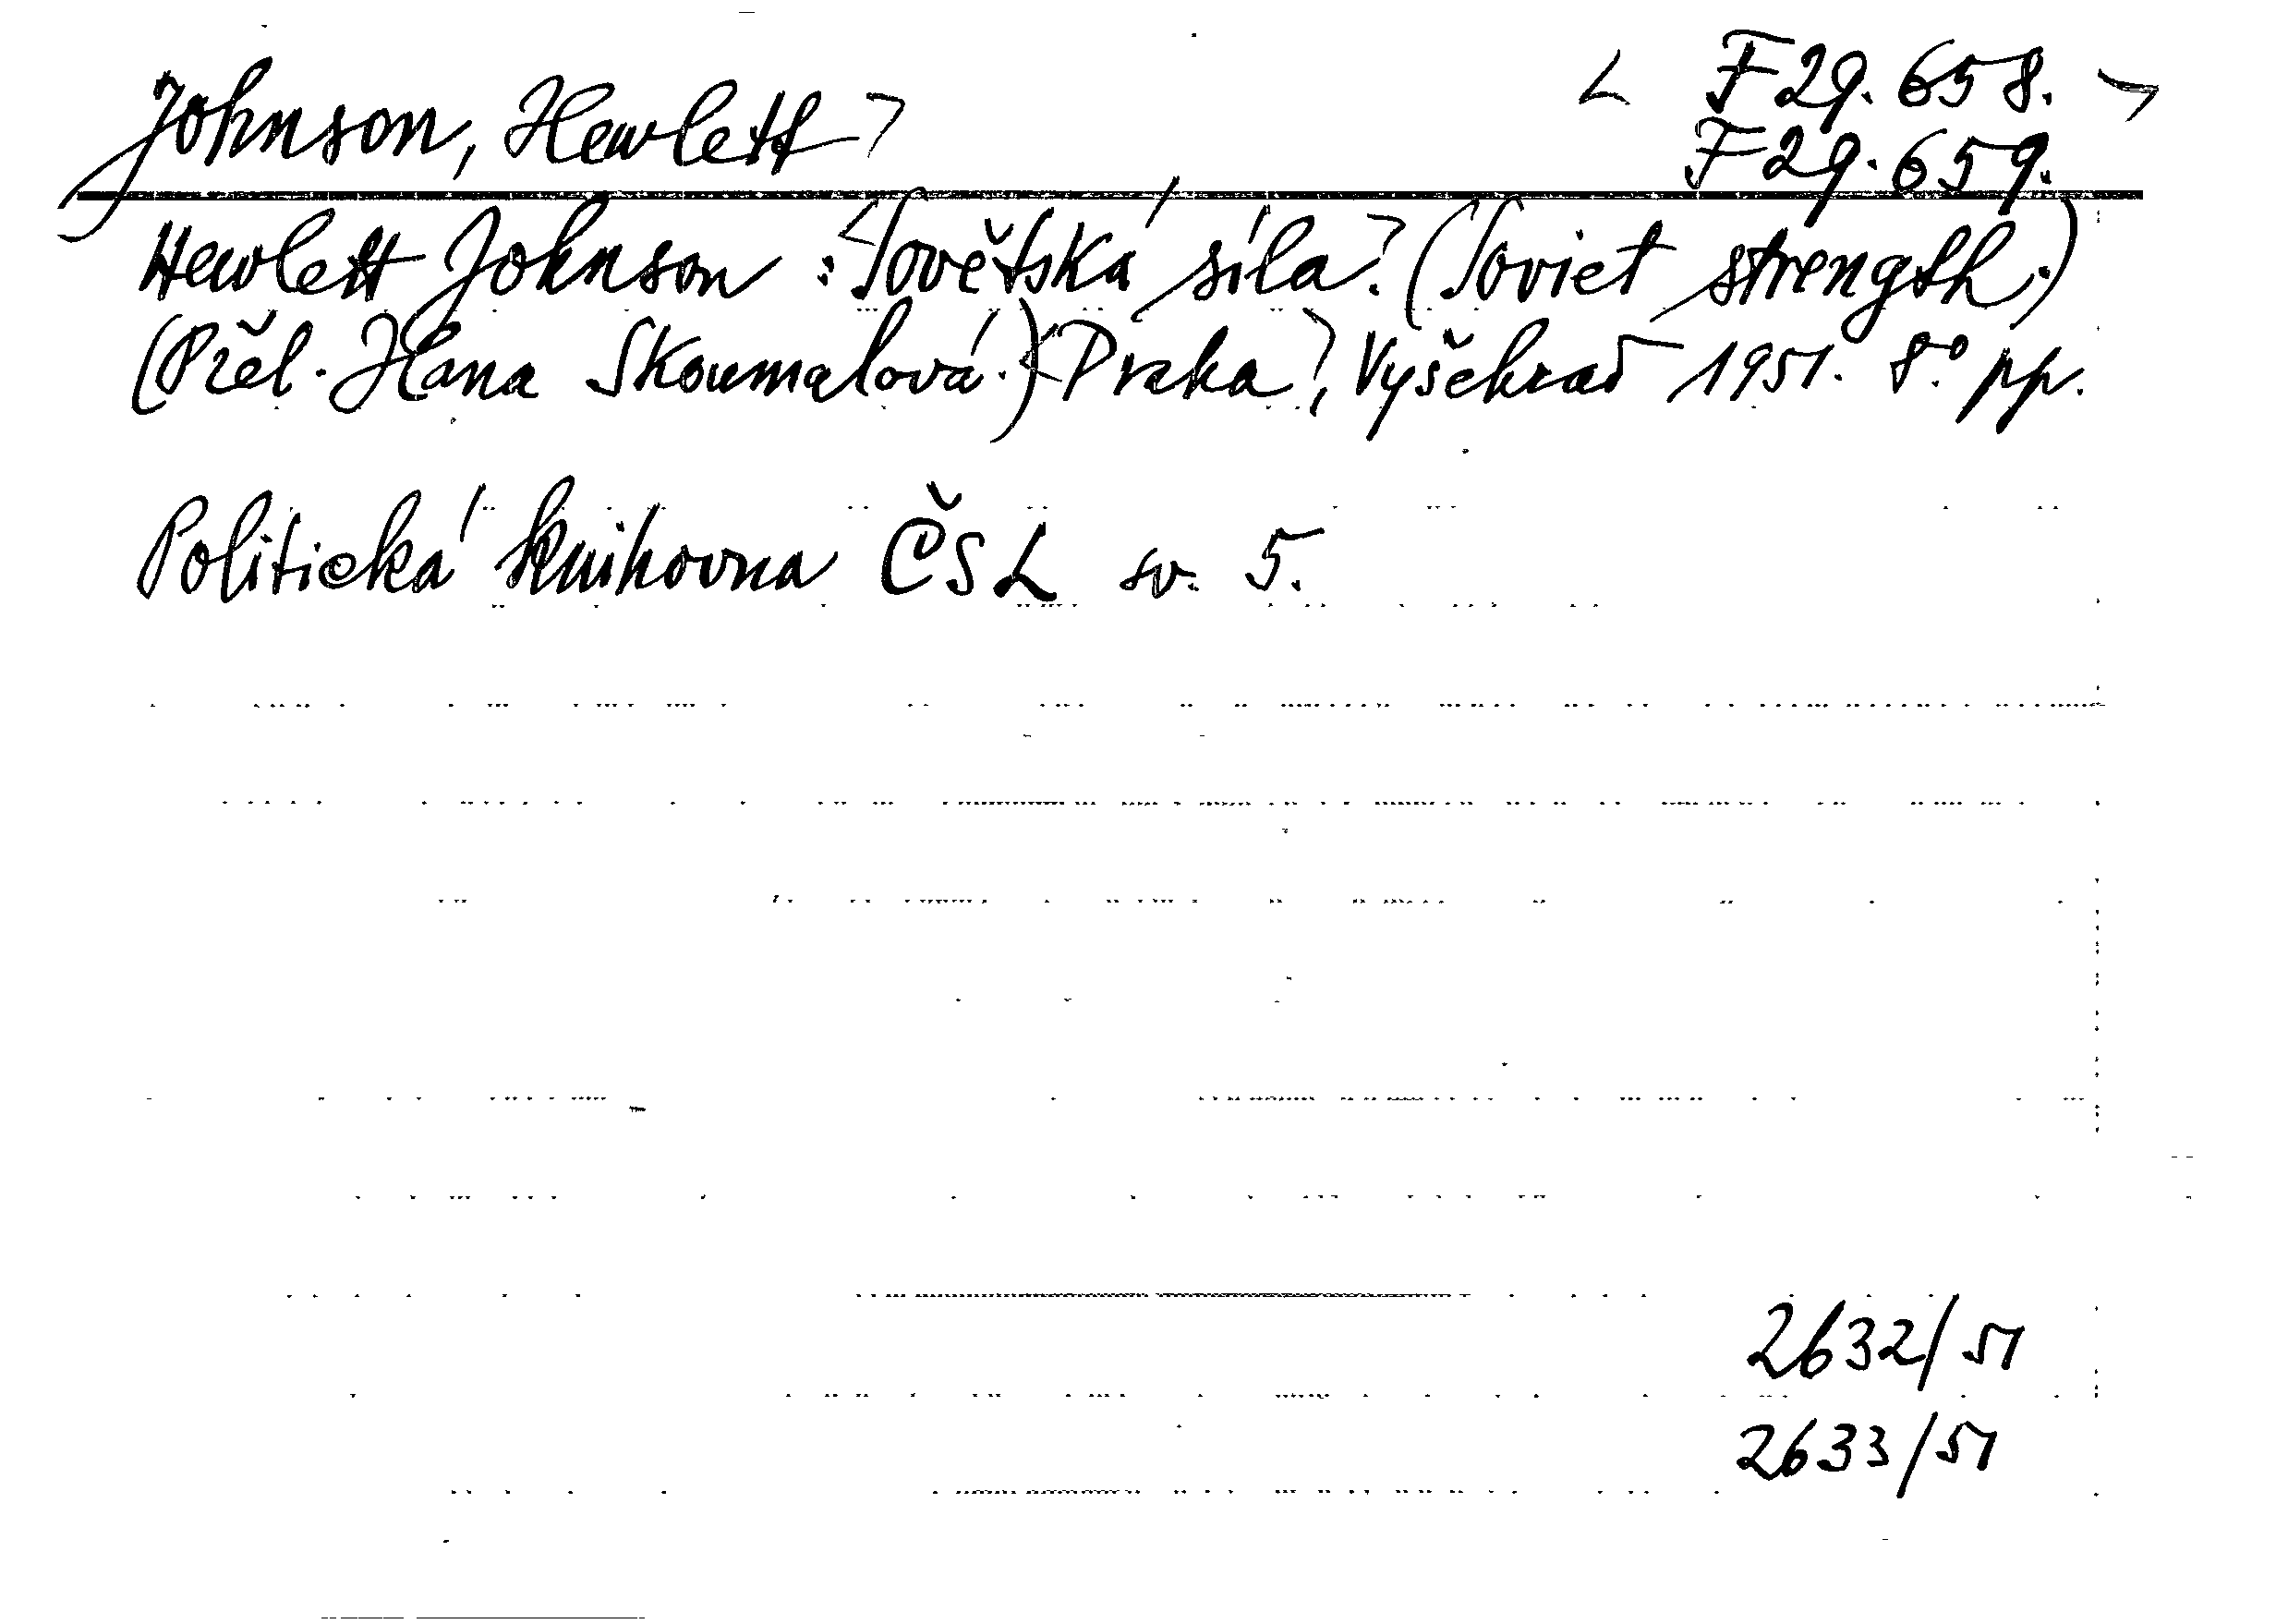 Johnson, Hewlett > < F 29.658. >
F 29.659.
Hewlett Johnson : <Sovětská síla.> (Soviet strength.)
(Přel. Hana Skoumalová.) <Praha>, Vyšehrad 1951. 8.° pp.
Politická knihovna ČSL sv. 5.
2632/51
2633/51